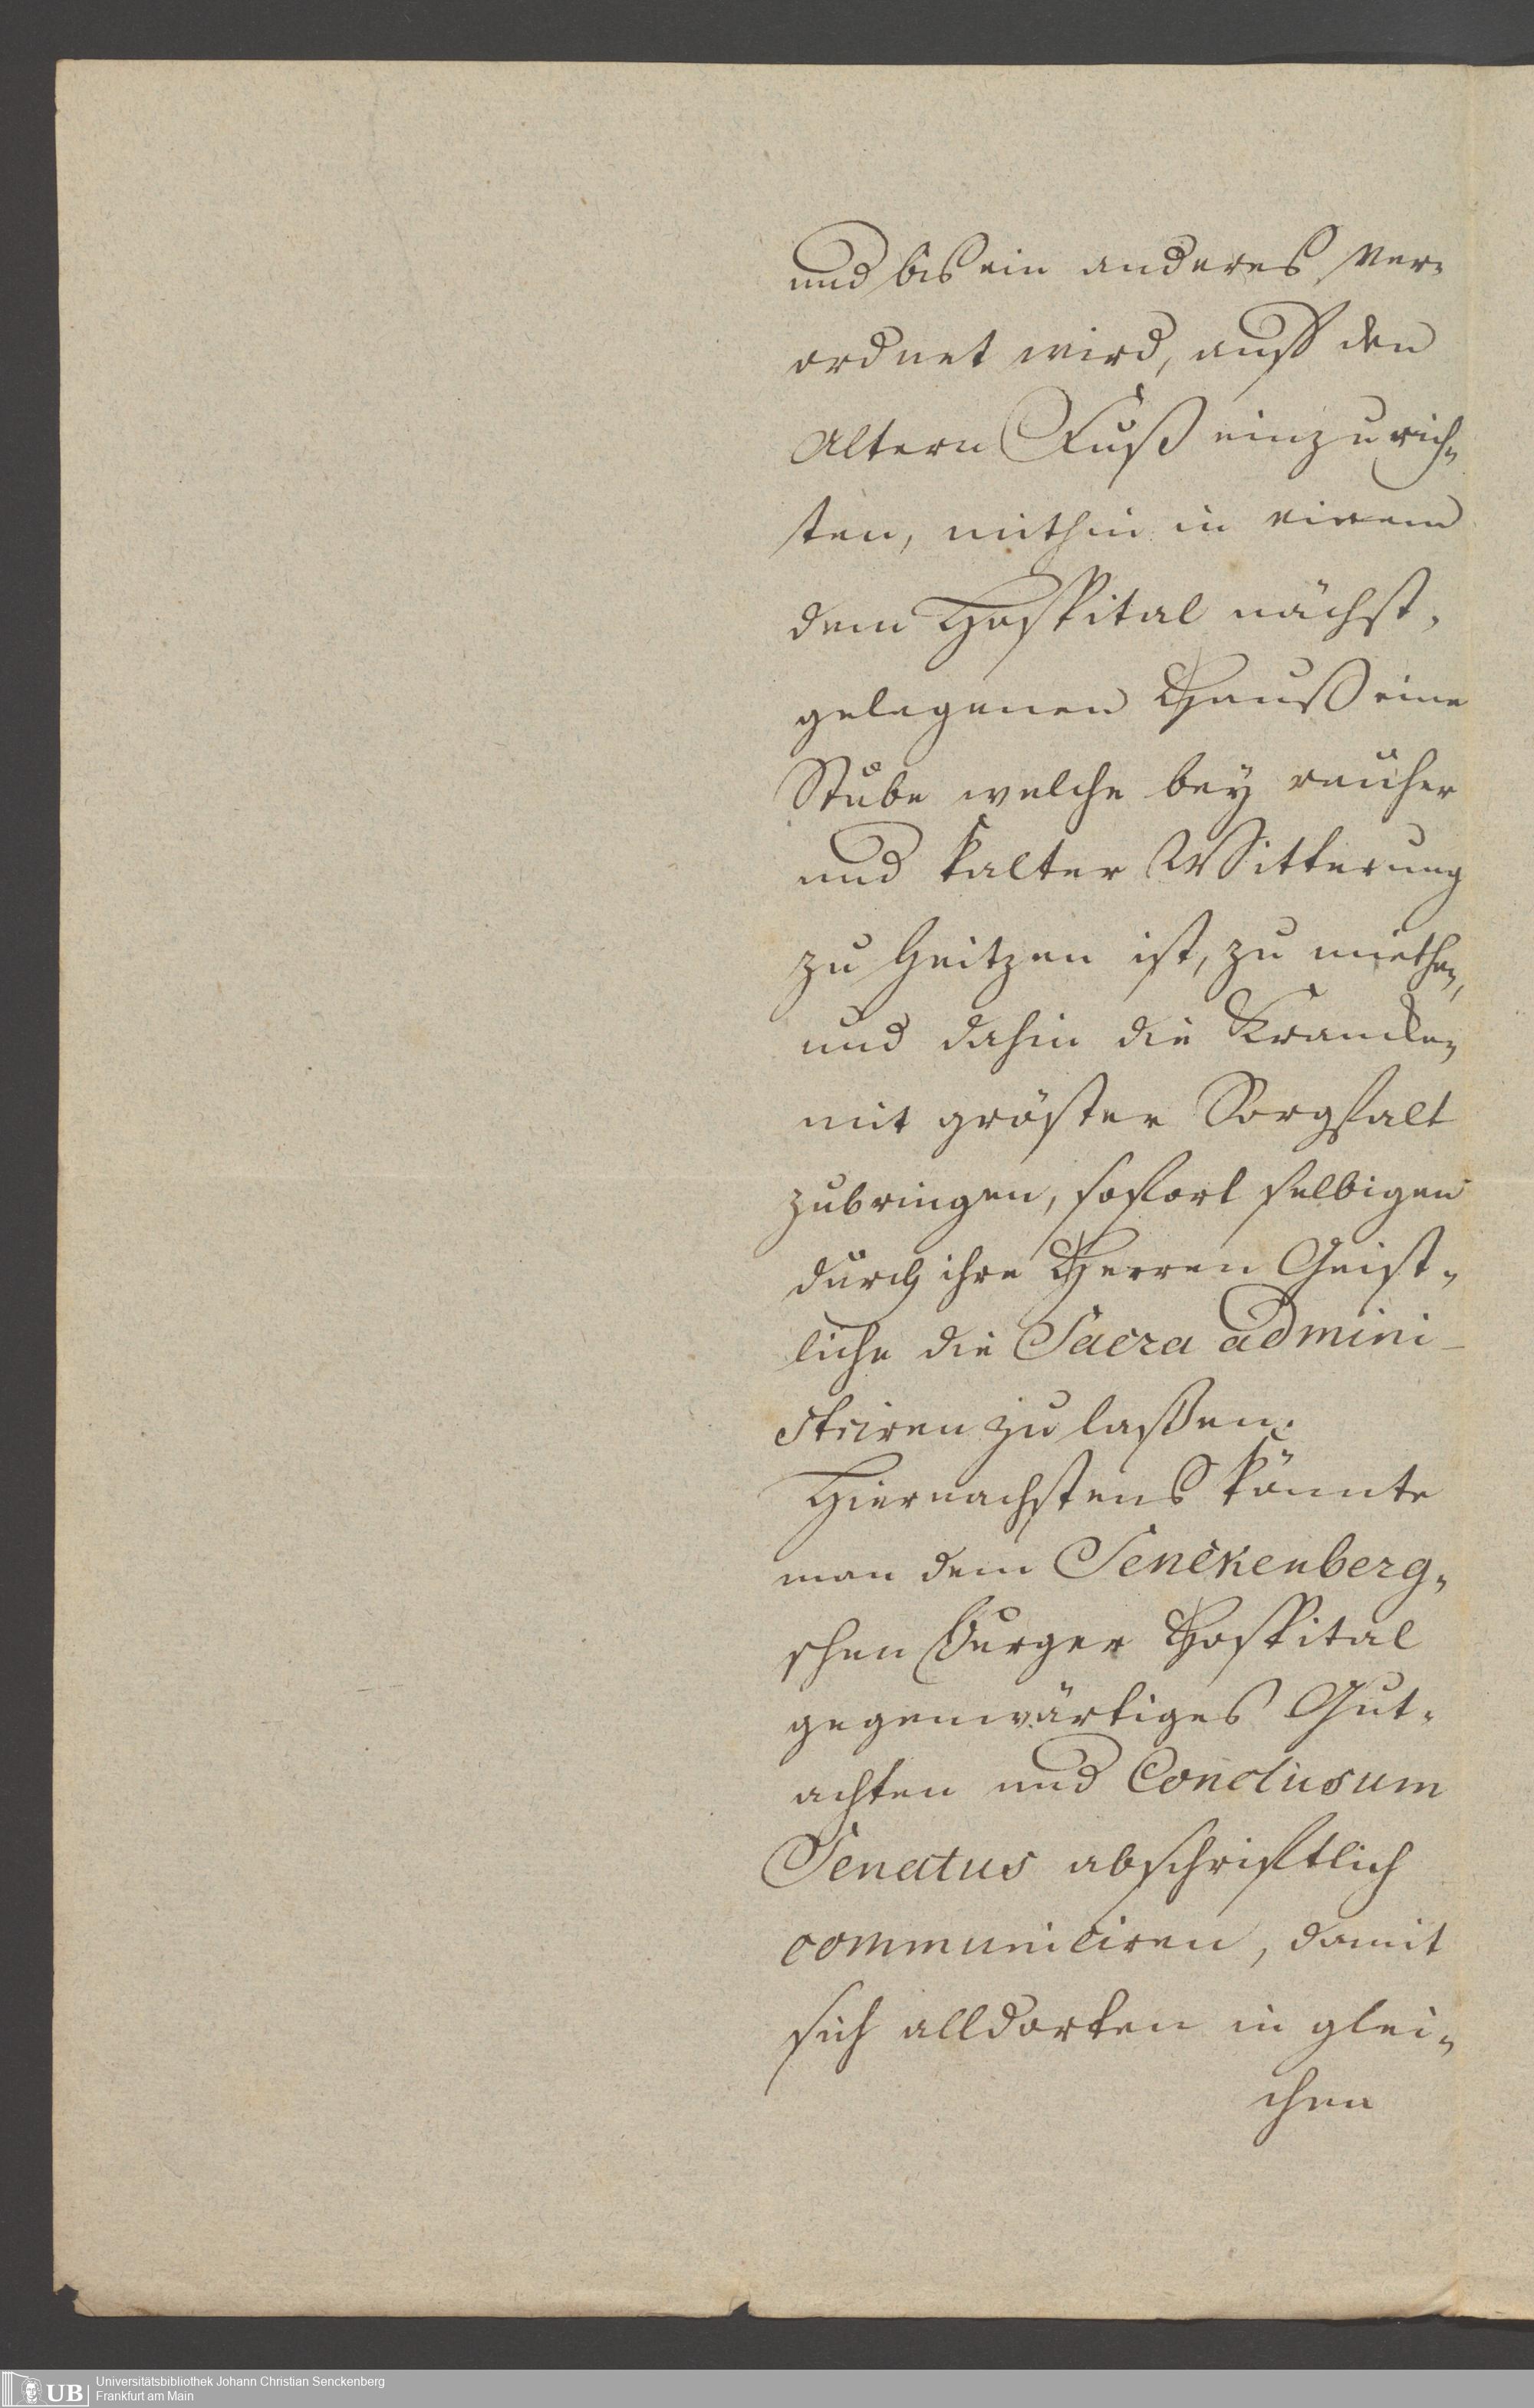 und bis ein anderes ver-
ordnet wird, auff den
Altern Fuß einzurich-
ten, mithin in einem
dem Hospital nächst-
gelegenen Hauß eine
Stube welche bey rauher
und kalter Witterung
zu heitzen ist, zu miethen,
und dahin die Krancken
mit gröster Sorgfalt
zubringen, sofort selbigen
durch ihre Herren Geist-
liche die Sacra admini-
striren zu laßen.
Hiernachstens könnte
man dem Senckenberg-
schen Burger Hospital
gegenwärtiges Gut-
achten und Conclusum
Senatus abschriftlich
communiciren, damit
sich alldorten in glei-
chen
UB
Universitätsbibliothek Johann Christian Senckenberg
Frankfurt am Main